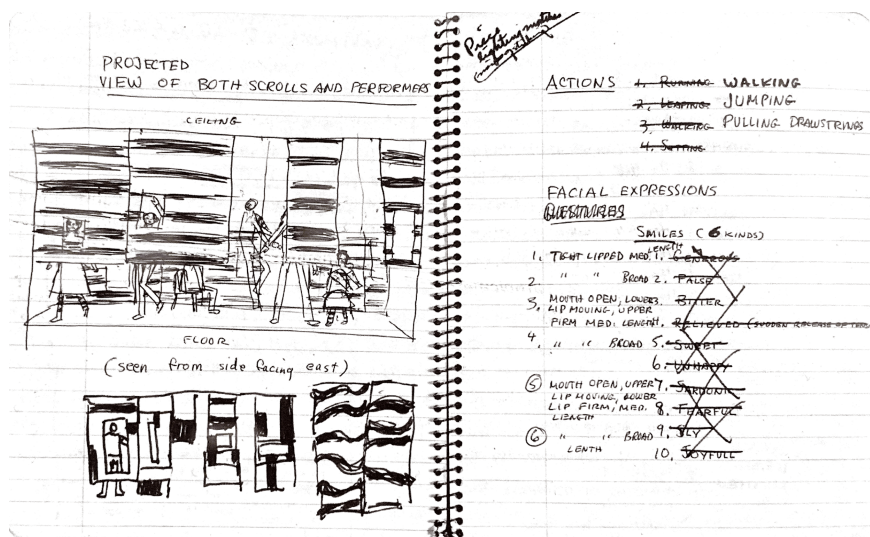 PROJECTED
VIEW OF BOTH SCROLLS AND PERFORMERS
CEILING
FLOOR
(seen from side facing east)
Piece
lighting matches
ACTIONS 1. RUNNING WALKING
2. LEAPING JUMPING
3. WALKING PULLING DRAWSTRINGS
4. SITTING
FACIAL EXPRESSIONS
GESTURES
SMILES (6 KINDS)
1. TIGHT LIPPED MED. LENGTH 1. GENEROUS
2 " " BROAD 2. FALSE
3. MOUTH OPEN, LOWER 3. BITTER
LIP MOVING, UPPER
FIRM MED. LENGTH 4. RELIEVED (SUDDEN RELEASE OF
4. " " BROAD 5. SWEET
6. UNHAPPY
5 MOUTH OPEN, UPPER 7. SARDONIC
LIP MOVING, LOWER
LIP FIRM, MED. 8. FEARFUL
LENGTH
6 " " BROAD 9. SLY
LENTH 10. JOYFULL